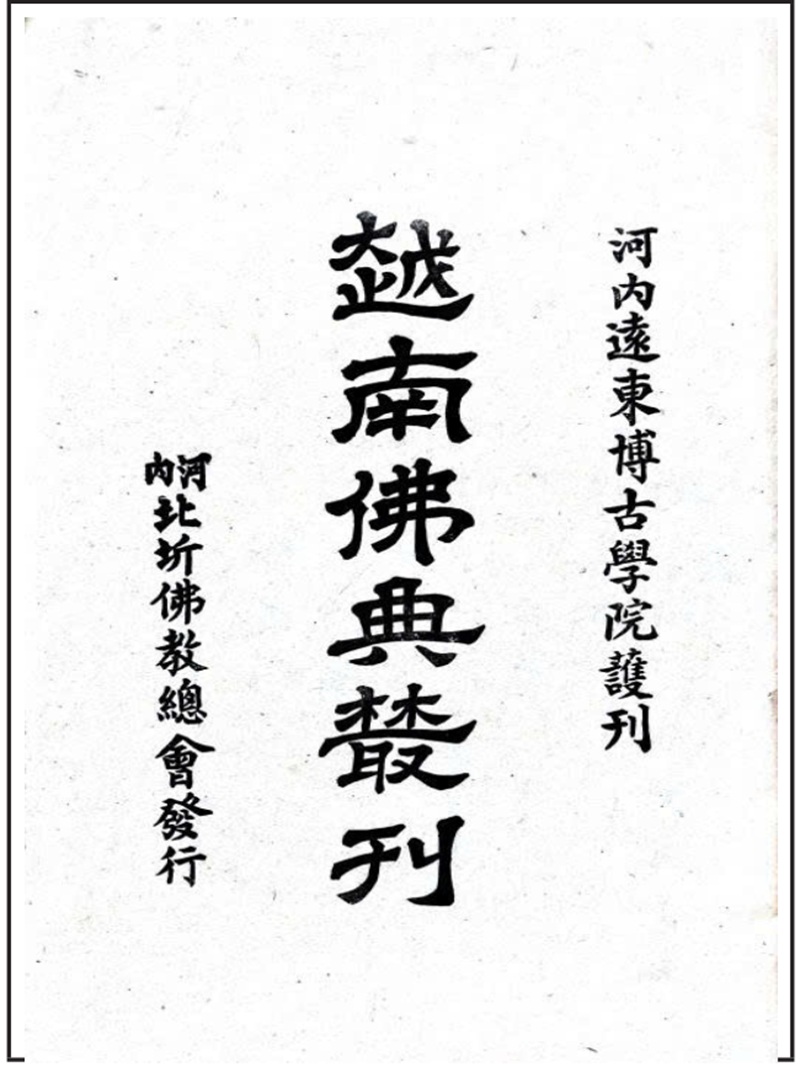 河内遠東博古學院護刊
越南佛典叢刊
河内北圻佛教總會發行